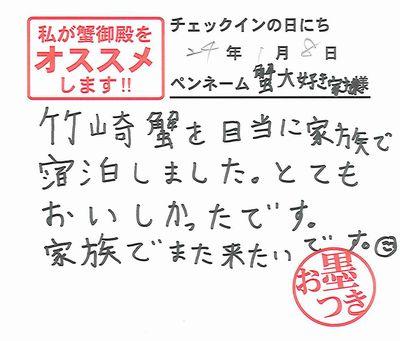 私が蟹御殿を
オススメ
します!!
チェックインの日にち
24年1月8日
ペンネーム 蟹大好き家族様
竹崎蟹を目当に家族で
宿泊しました。とても
おいしかったです。
家族でまた来たいです。
お墨つき